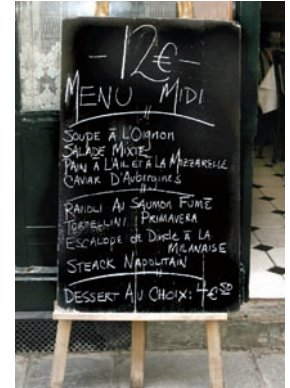 - 12€ -
MENU MIDI
SOUPE À L'OIGNON
SALADE MIXTE
PAIN A L'AIL ET A LA MOZZARELLE
CAVIAR D'AUBERGINES
RAVIOLI AU SAUMON FUMÉ
TORTELLINI PRIMAVERA
ESCALOPE de Dinde À LA
MILANAISE
STEACK NAPOLITAIN
DESSERT AU CHOIX: 4€50